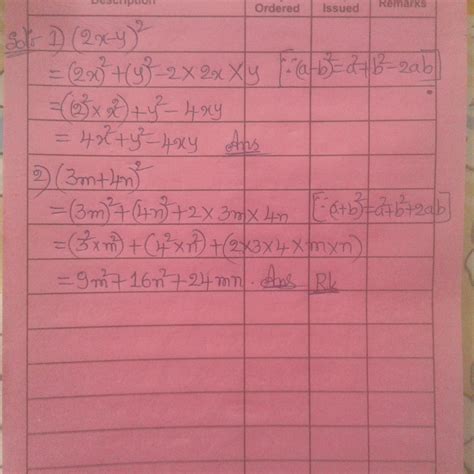 Description Ordered Issued Remarks
Soln 1) (2x-y)²
= (2x)²+(y)²-2×2x×y [∵(a-b)²=a²+b²-2ab]
=(2²×x²)+y²-4xy
= 4x²+y²-4xy Ans
2) (3m+4n)²
=(3m)²+(4n)²+2×3m×4n [∵(a+b)²=a²+b²+2ab]
=(3²×m²)+(4²×n²)+(2×3×4×m×n)
=9m²+16n²+24mn. Ans Rk